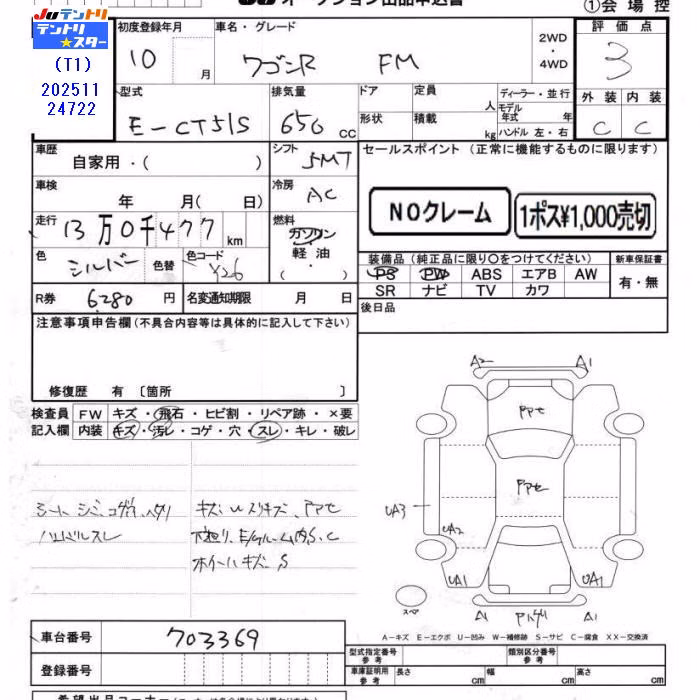 JUテントリ
テントリ★スター
(T1)
202511
24722
オークション出品申込書
①会場控
初度登録年月
10 月
車名・グレード
ワゴンR FM
2WD
・
4WD
評価点
3
外装 内装
C C
型式
E-CT51S
排気量
650 cc
ドア
形状
定員 人
積載 kg
ディーラー・並行
モデル年式 年
ハンドル 左・右
車歴
自家用・( )
シフト
5MT
セールスポイント (正常に機能するものに限ります)
車検
年 月( 日)
冷房
AC
NOクレーム
1ポス¥1,000売切
走行
13万0千477 km
燃料
ガソリン
軽油
( ・ )
色
シルバー
色替
色コード
Y26
装備品 (純正品に限り○をつけてください)
新車保証書
PS PW ABS エアB AW
SR ナビ TV カワ
有・無
R券 6280 円
名変通知期限 月 日
後日品
注意事項申告欄 (不具合内容等は具体的に記入して下さい)
修復歴 有 〔箇所 〕
検査員
記入欄
FW キズ・飛石・ヒビ割・リペア跡・×要
内装 キズ・汚レ・コゲ・穴・スレ・キレ・破レ
シート シミ、コゲ穴、ヘタリ
ハンドルスレ
キズ U スリキズ、アアセ
下廻り、E/gルーム内S、C
ホイールキズ、S
A2 A1
アアセ
アアセ
UA3
UA2
UA1 UA1
スペア
A1 A1
A-キズ E-エクボ U-凹み W-補修跡 S-サビ C-腐食 XX-交換済
車台番号 703369
登録番号
型式指定番号
参考
類別区分番号
参考
車庫証明用
参考
長さ cm 幅 cm 高さ cm
希望出品コーナー